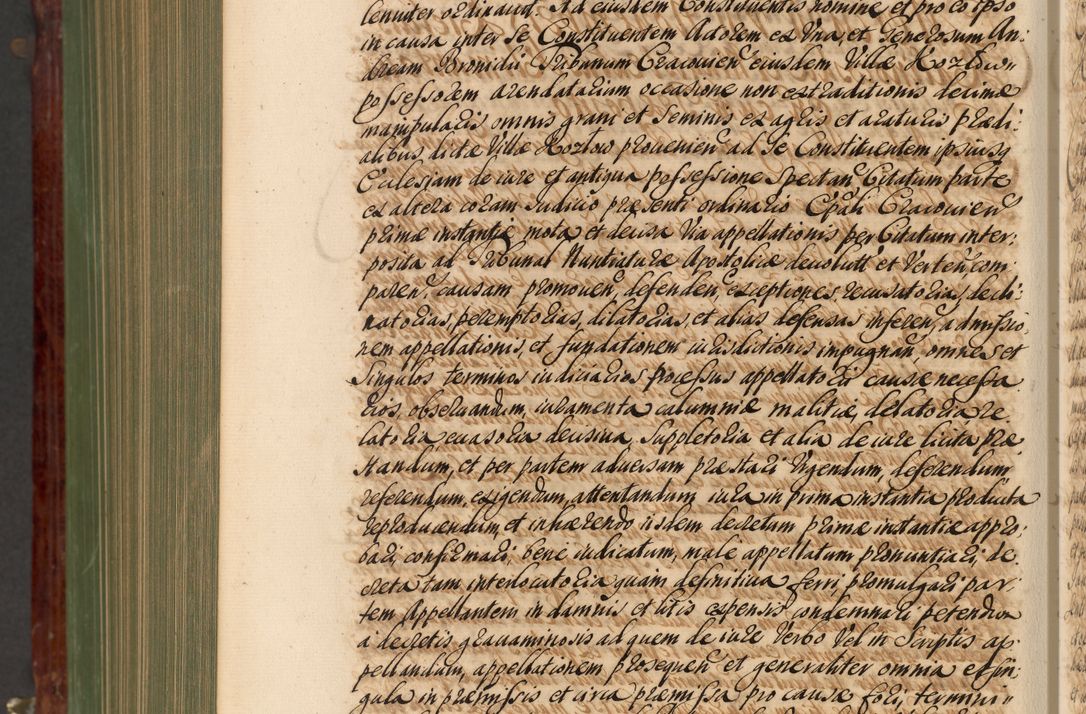 leniter ordinavit. Ad eiusdem Constituentis nomine et pro eo ipso
in causa inter Se Constituentem Actorem ex Una, et Generosum An:
dream Bronidij Tribunum Cracovien̄ eiusdem Villæ Kozłow
possessorem arendatarium occasione non extraditionis decimæ
manipularis omnis grani et Seminis ex agris et araturis prædi:
alibus, dictæ Villæ Kozłow provenien̄ ad Se Constituentem ipsiusq
Ecclesiam de iure et antiqua possessione Spectan̄ Citatum parte
ex altera coram Iudicio præsenti ordinario Epali Cracovien̄
primæ instantiæ mota et decisa Via appellationis per Citatum inter:
posita ad Tribunal Nuntiaturæ Apostolicæ devolut et Verten̄ com:
paren̄, causam promoven̄, defenden̄, exceptiones, recusatorias, decli:
natorias, peremptorias, dilatorias, et alias defensas inferen̄, admissio:
nem appellationis, et fundationem iurisdictionis impugnan̄, omnes et
Singulos terminos iudiciarios processus appellatorii causæ necessa:
rios, observandum, iuramenta calumniæ malitiæ, delatoria re
latoria evasoria decisiva, Suppletoria et alia de iure licita præ
standum, et per partem adversam præstari Urgendum, deferendum
referendum, exigendum, attentandum iura in prima instantia producta
reproducendum, et inhærendo iisdem decretum primæ instantiæ appro:
bari, confirmari, bene iudicatum, male appellatum pronuntiari, de
creta tam interlocutoria quam definitiva ferri, promulgari par:
tem Appellantem in damnis et litis expensis condemnari petendum
a decretis gravaminosis ad quem de iure Verbo Vel in Scriptis ap:
pellandum, appellationem prosequen̄ et generaliter omnia et sin:
gula in præmissis et circa præmissa pro causæ fori, termini